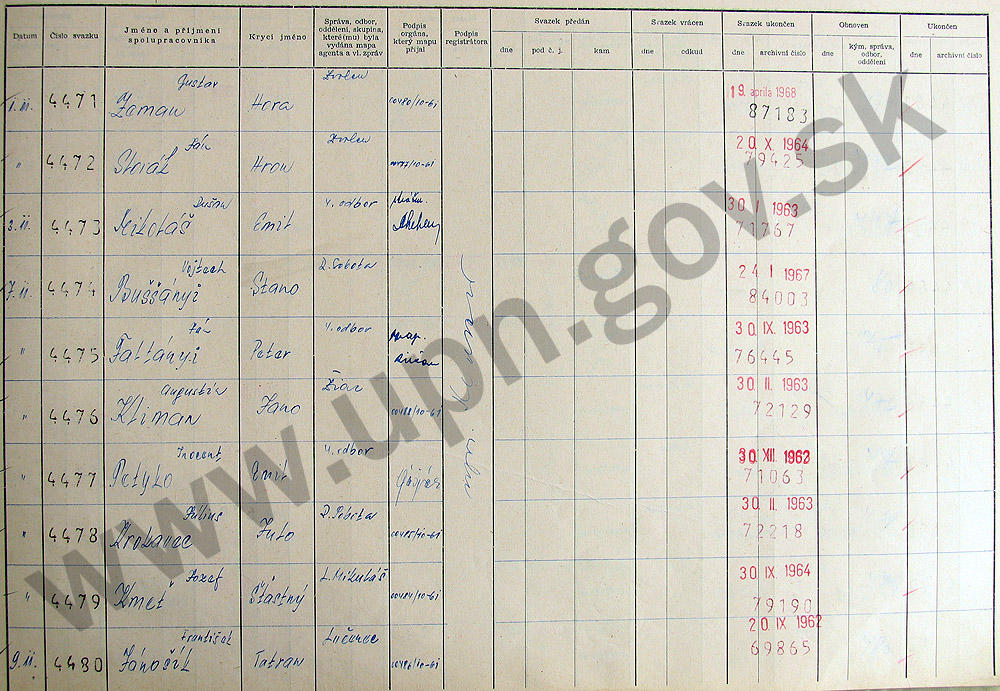 Datum
Číslo svazku
Jméno a příjmení spolupracovníka
Krycí jméno
Správa, odbor, oddělení, skupina, které(mu) byla vydána mapa agenta a vl. zpráv
Podpis orgána, který mapu přijal
Podpis registrátora
Svazek předán
dne
pod č. j.
kam
Svazek vrácen
dne
odkud
Svazek ukončen
dne
archivní číslo
Obnoven
dne
kým, správa, odbor, oddělení
Ukončen
dne
archivní číslo
4471 Gustav Zeman Hora Zvolen 00480/10-61 19. aprila 1968 87183
" 4472 Ján Hron Zvolen 20. X. 1964 79425
3.II. 4473 Dušan Mikoláš Emil 4. odbor 30 I 1963 71767
7.II. 4474 Vojtech Buššányi Stano R. Sobota 24 I 1967 84003
" 4475 Ján Peter 4. odbor 30 IX. 1963 76445
" 4476 Augustín Kliman Jano Žiar 00488/10-61 30 II. 1963 72129
" 4477 Inocent Emil 4. odbor 30 XII 1962 71063
" 4478 Július Julo 00485/10-61 30 II. 1963 72218
" 4479 Jozef Kmeť Šťastný L. Mikuláš 00484/10-61 30 IX. 1964 79190
9.II. 4480 František Jánošík Tatran Lučenec 00486/10-61 20 IX 1962 69865
www.upn.gov.sk